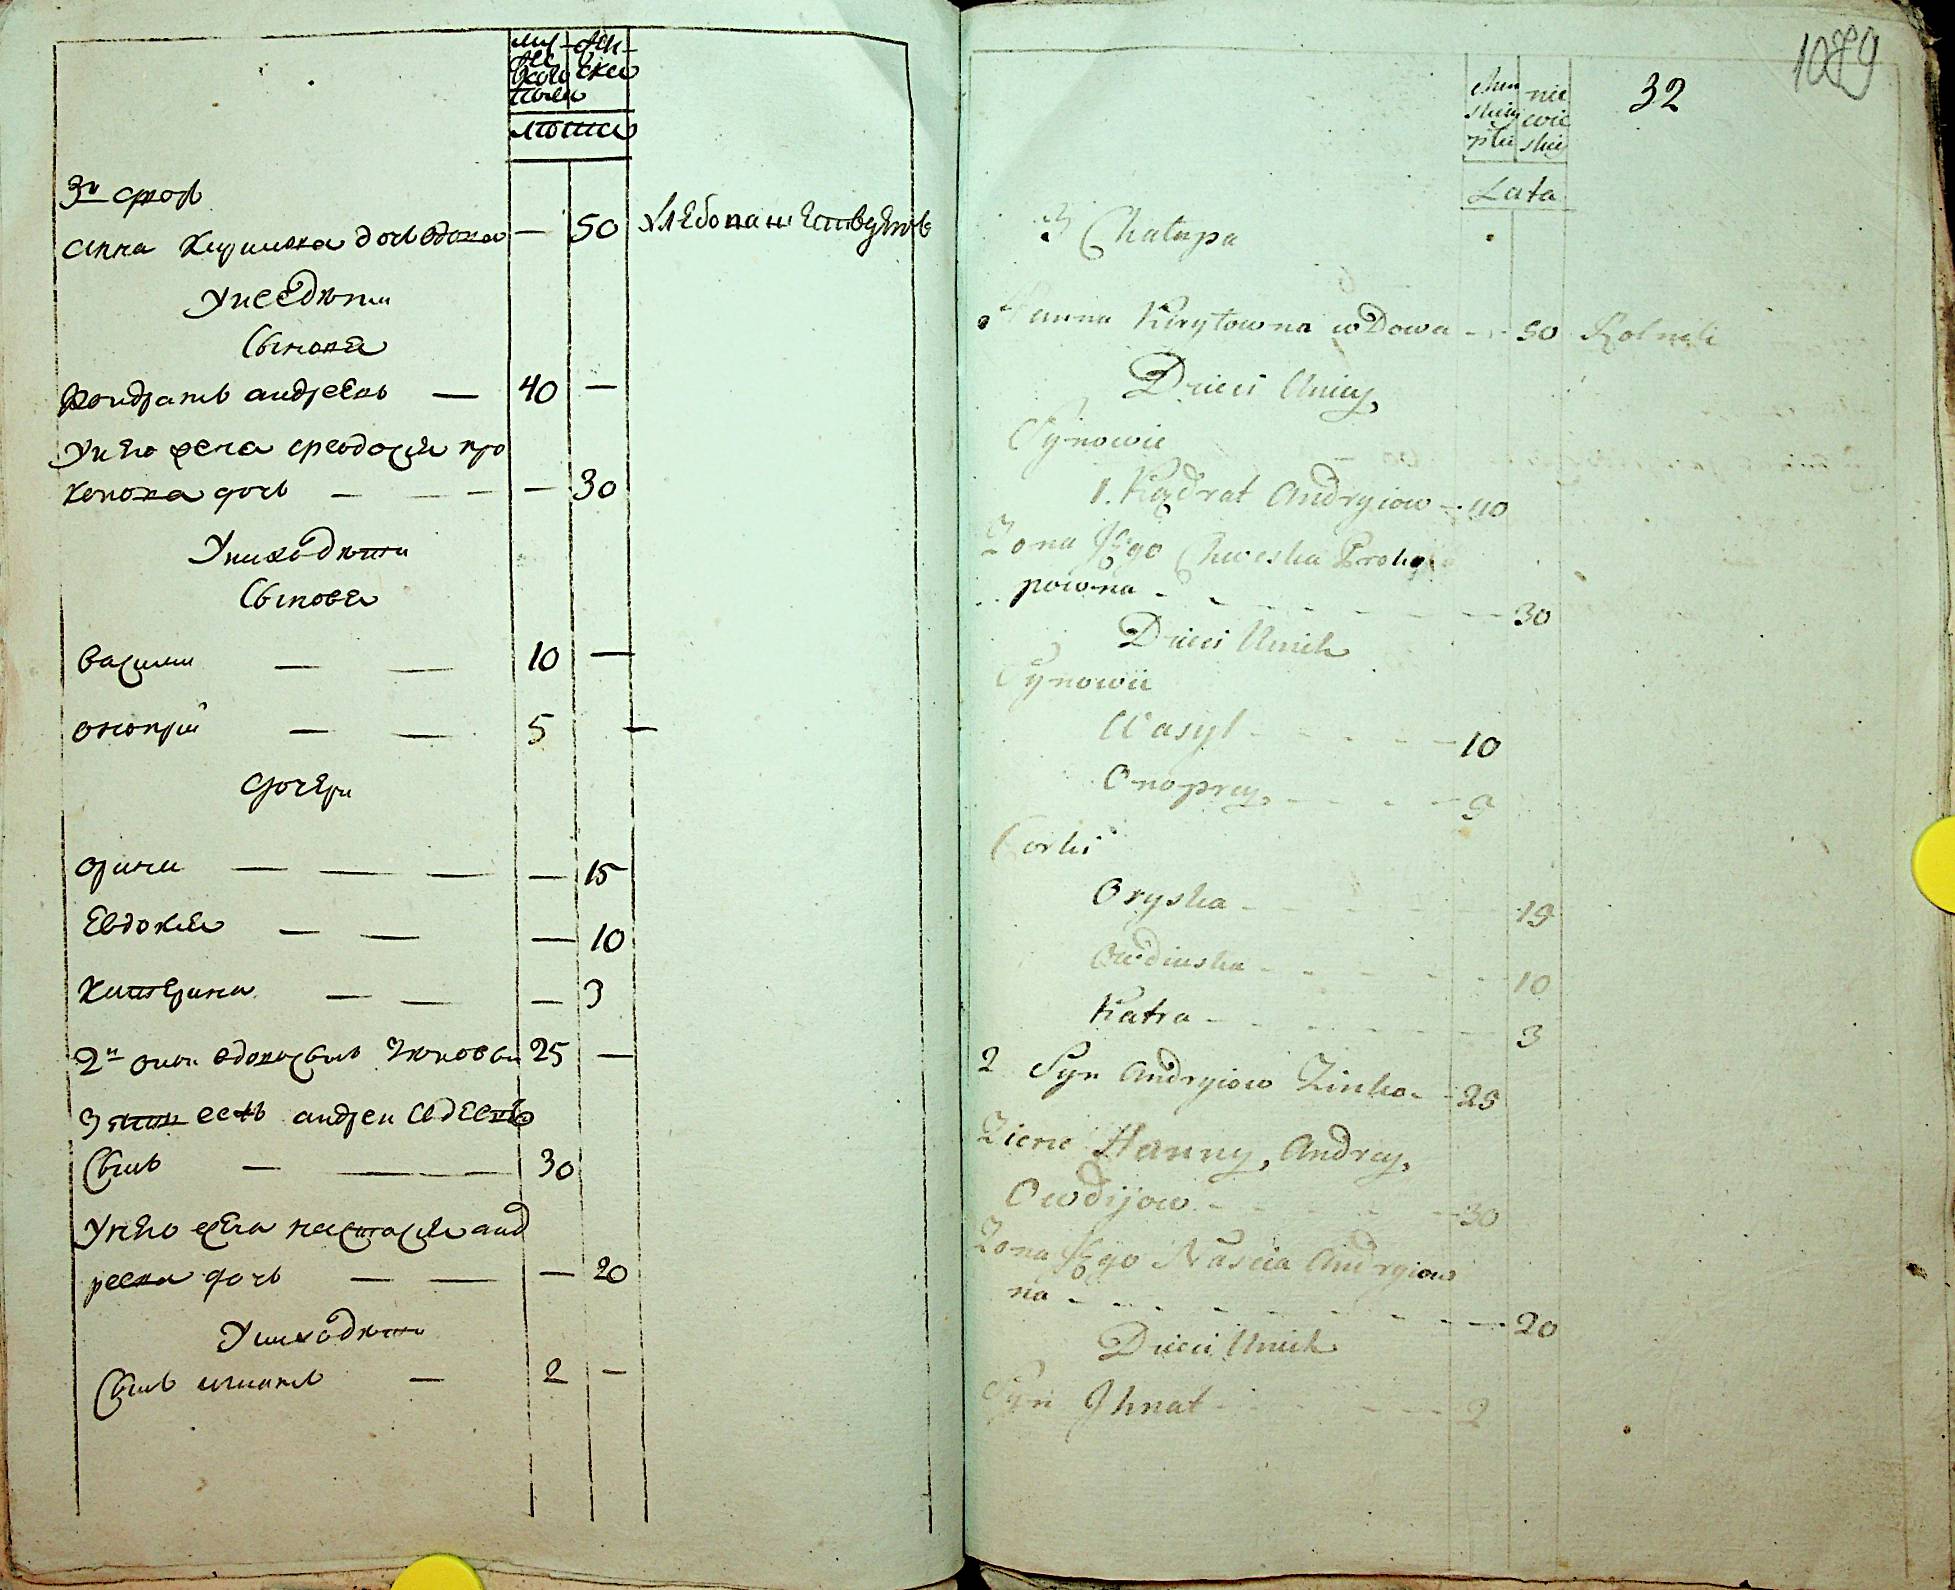 мужескаго полу
женска
лѣта
3й дворъ
Анна Кирилова дочь вдова — 50 Хлѣбопашествуетъ
У нее дѣти
Сыновья
Кондратъ андреевъ — 40 —
У него жена Феодосия про
копова дочь — — — — 30
У них дѣти
Сыновья
Василий — — 10 —
Онопрій — — 5 —
Дочери
Орина — — — — 15
Евдокия — — — 10
Катерина — — — 3
2й сын вдовы сынъ Зиновѣй 25 —
Зять есть андрей Авдеевъ
Сынъ — — — 30
У него жена Настасия анд
реева дочь — — — 20
У них дѣти
Сынъ игнатъ — 2 —
1089
32
Lata
3 Chałupa
Hanna Kiryłowna wDowa - - 50 Rolnik
Dzieci Uniey
Synowie
1. Kądrat Andryiow - 40
Zona Jego Chweska Proko
powna - - - - - - - 30
Dzieci Unich
Synowie
Wasyl - - - - - 10
Onoprey - - - - 5
Corki
Oryska - - - - - 15
Owdiuska - - - - - 10
Katra - - - - - - 3
2 Syn Andryiow Zinko - 25
Ziene Hanny, Andrey,
Owdijow - - - - - 30
Zona Jego Nascia Andryiow
na - - - - - - - 20
Dzieci Unich
Syn Ihnat - - - - - 2